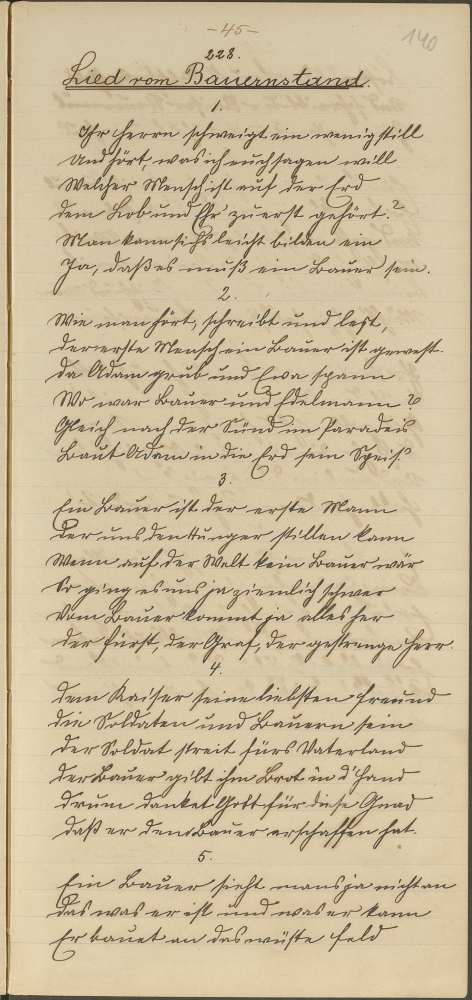 -45-
140
228.
Lied vom Bauernstand.
1.
Ihr Herrn schweigt ein wenig still
Und hört, was ich euch sagen will
Welcher Mensch ist auf der Erd
Dem Lob und Ehr' zuerst gehört?
Man kann sichs leicht bilden ein
Ja, daß es muß ein Bauer sein.
2.
Wie man hört, schreibt und lest,
Der erste Mensch ein Bauer ist gewest.
Da Adam grub und Eva spann
Wo war Bauer und Edelmann?
Gleich nach der Sünd im Paradeis
Baut Adam in die Erd sein Speis.
3.
Ein Bauer ist der erste Mann
Der uns den Hunger stillen kann
Wenn auf der Welt kein Bauer wär
So ging es uns ja ziemlich schwer
Vom Bauer kommt ja alles her
Der Fürst, der Graf, der gestrenge Herr.
4.
Dem Kaiser seine liebsten Freund
Die Soldaten und Bauern sein
Der Soldat streit fürs Vaterland
Der Bauer gibt ihm Brot in d' Hand
Drum danket Gott für diese Gnad
Daß er den Bauer erschaffen hat.
5.
Ein Bauer sieht mans ja nicht an
Das was er ist und was er kann
Er bauet an das wüste Feld